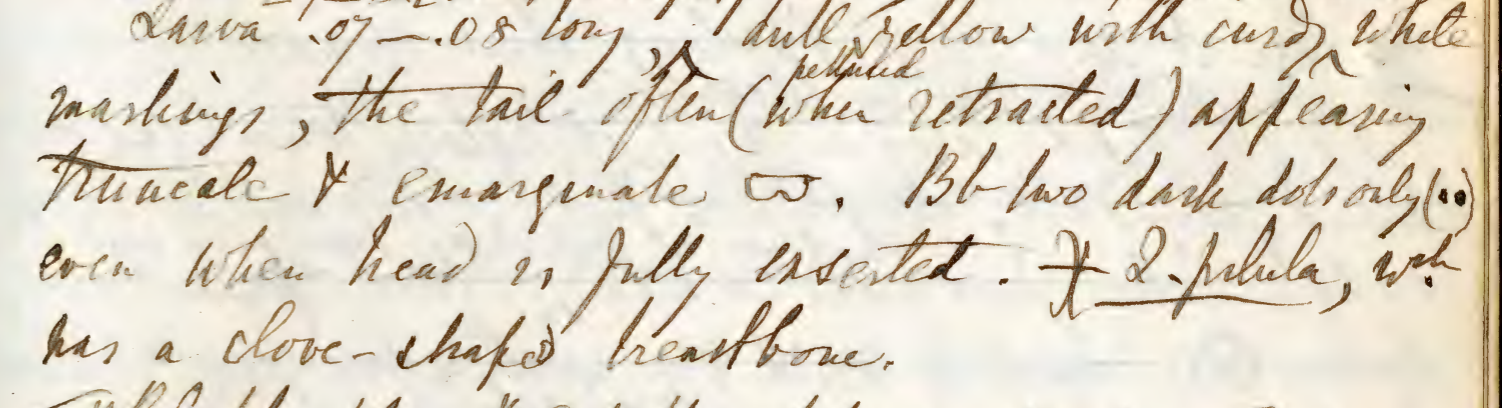 Larva .07–.08 long, dull yellow with curdy white
markings, the tail often (when retracted) appearing
truncate & emarginate. Bb two dark dots only (••)
even when head is fully exserted. ≠ 2. pilula, wh.
has a clove-shaped breastbone.